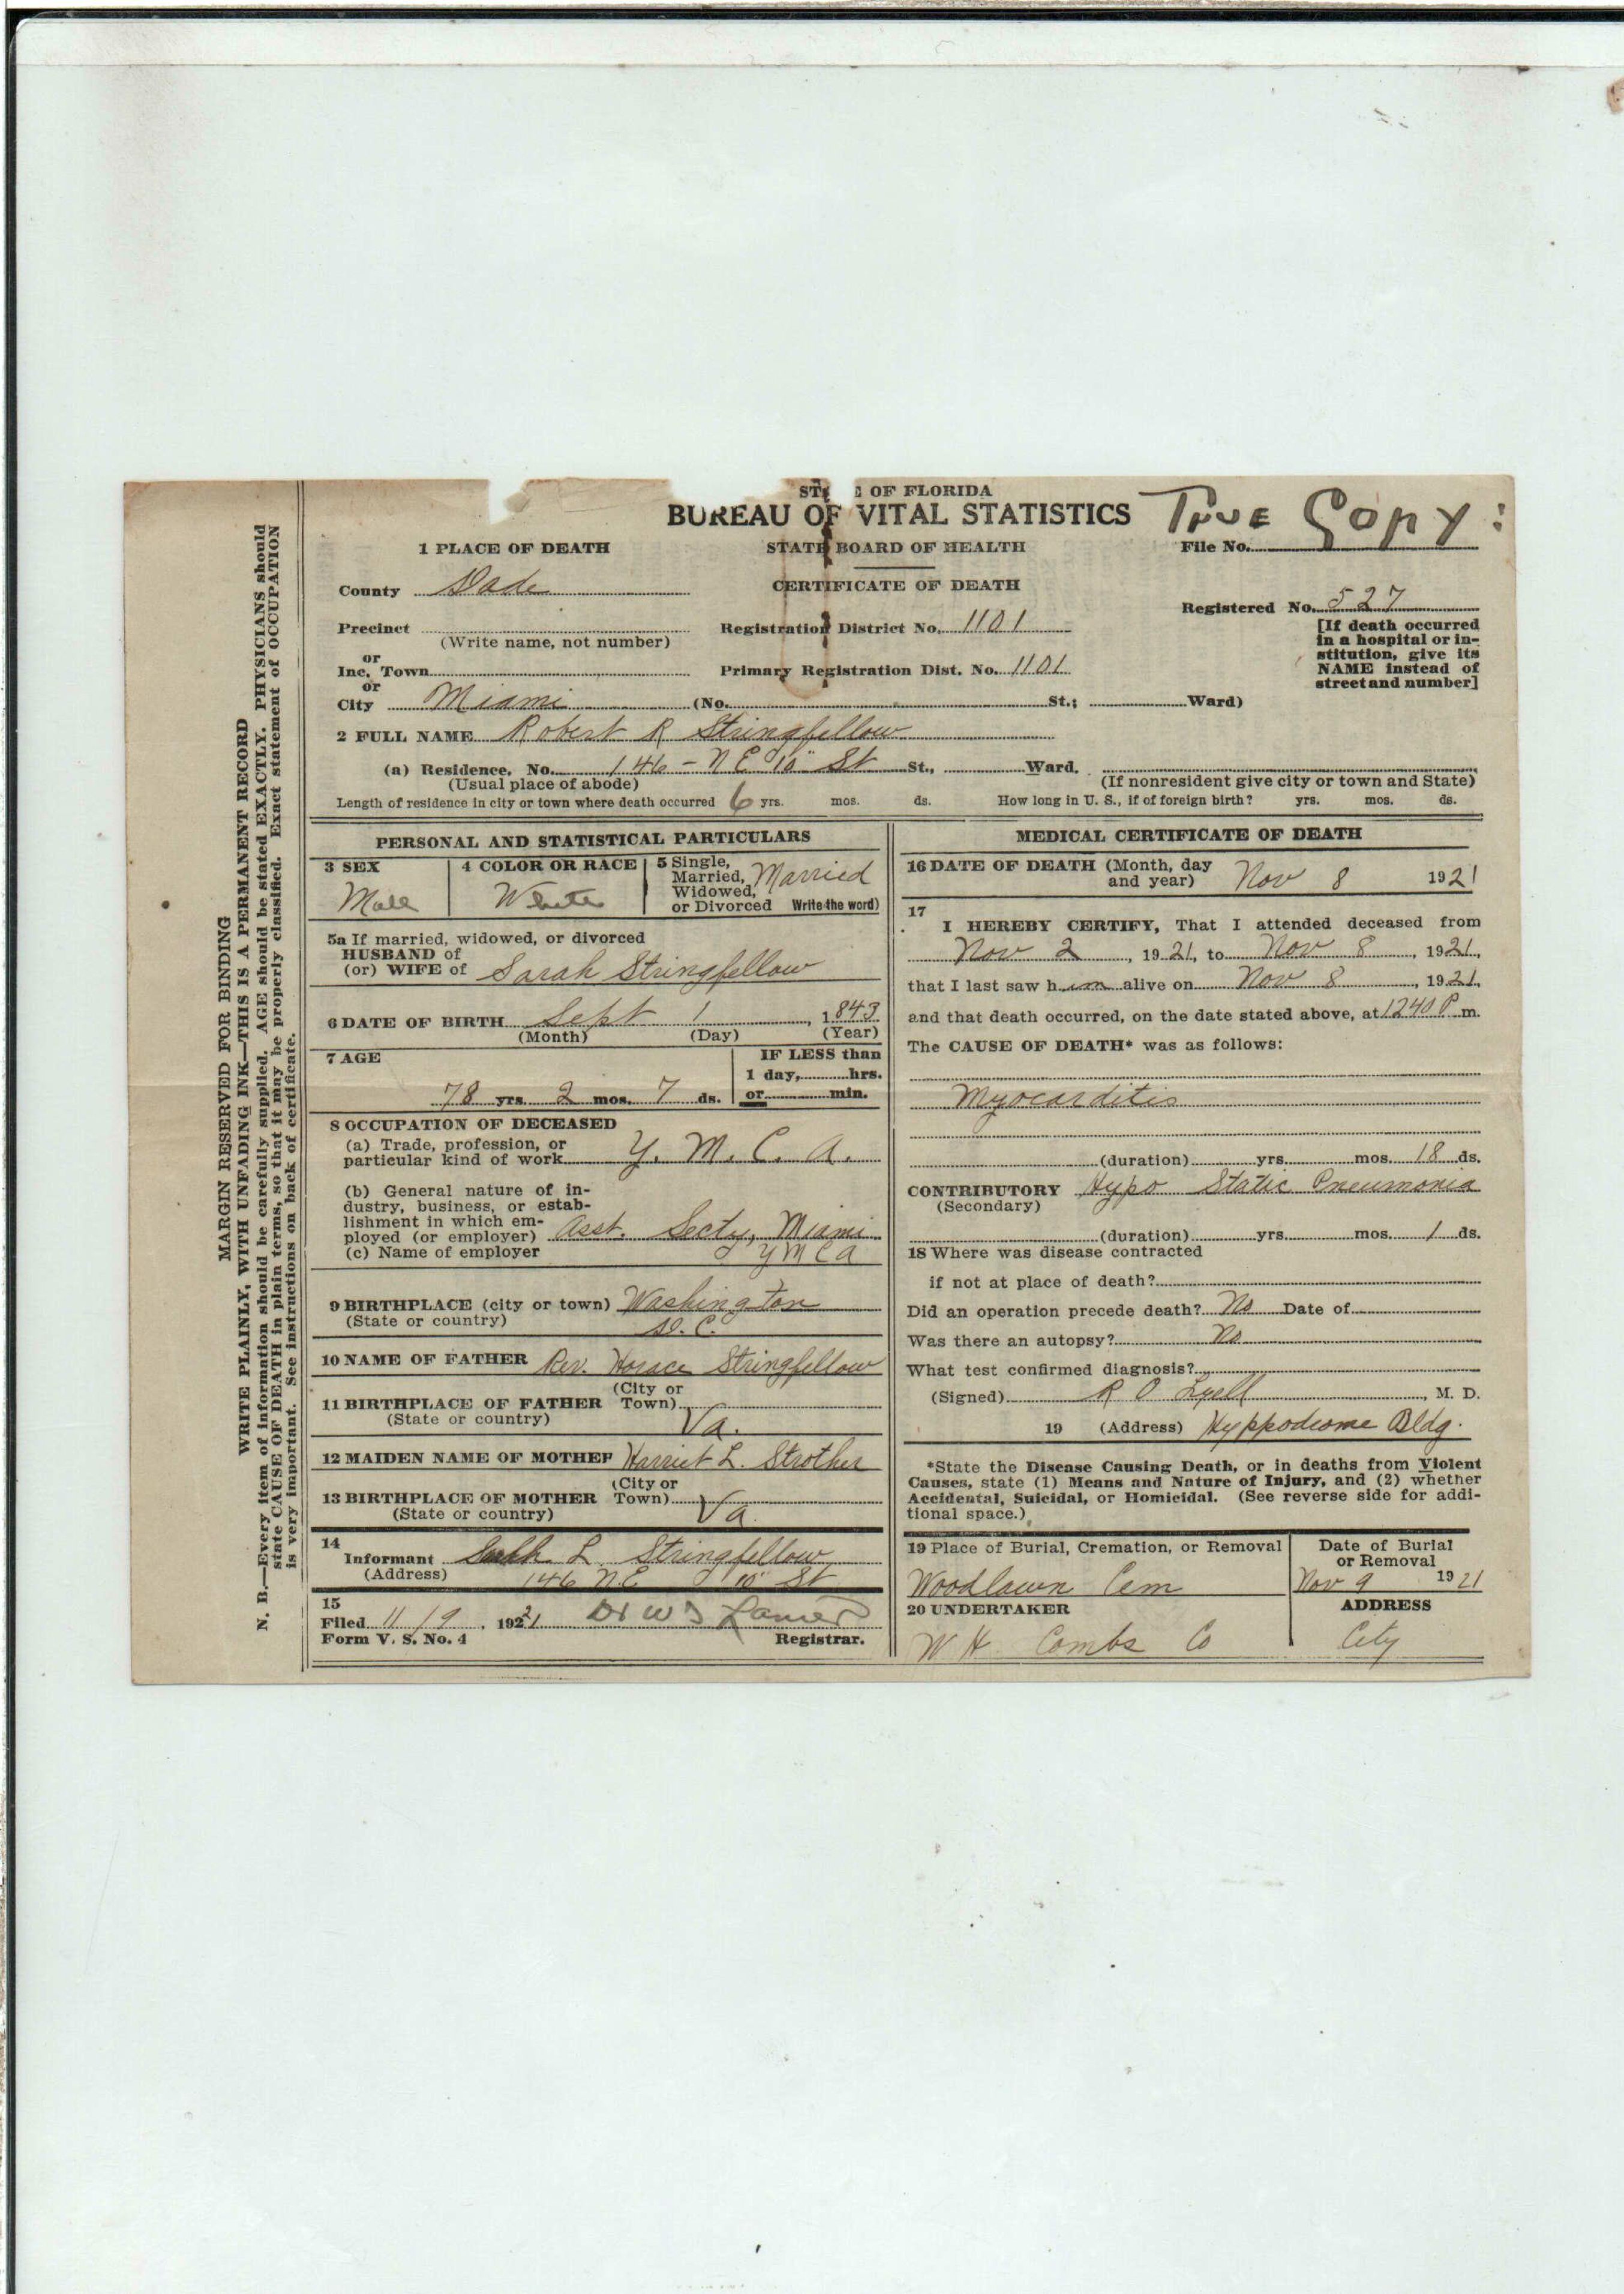 STATE OF FLORIDA
BUREAU OF VITAL STATISTICS
True Copy:
1 PLACE OF DEATH
STATE BOARD OF HEALTH
File No.
County Dade
CERTIFICATE OF DEATH
Registered No. 527
Precinct
(Write name, not number)
Registration District No. 1101
[If death occurred
in a hospital or in-
stitution, give its
NAME instead of
street and number]
or
Inc. Town
Primary Registration Dist. No. 1101
or
City Miami (No. St.; Ward)
2 FULL NAME Robert R Stringfellow
(a) Residence. No. 146 - N E 10" St St., Ward.
(Usual place of abode)
(If nonresident give city or town and State)
Length of residence in city or town where death occurred 6 yrs. mos. ds. How long in U. S., if of foreign birth? yrs. mos. ds.
PERSONAL AND STATISTICAL PARTICULARS
3 SEX
Male
4 COLOR OR RACE
White
5 Single,
Married,
Widowed,
or Divorced Write the word)
Married
5a If married, widowed, or divorced
HUSBAND of
(or) WIFE of Sarah Stringfellow
6 DATE OF BIRTH Sept 1, 1843
(Month) (Day) (Year)
7 AGE
78 yrs. 2 mos. 7 ds.
IF LESS than
1 day, hrs.
or min.
8 OCCUPATION OF DECEASED
(a) Trade, profession, or
particular kind of work Y. M. C. A.
(b) General nature of in-
dustry, business, or estab-
lishment in which em-
ployed (or employer) Asst. Secty, Miami
(c) Name of employer Y M C A
9 BIRTHPLACE (city or town) Washington
(State or country) D. C.
10 NAME OF FATHER Rev. Horace Stringfellow
11 BIRTHPLACE OF FATHER (City or Town)
(State or country) Va.
12 MAIDEN NAME OF MOTHER Harriet L. Strother
13 BIRTHPLACE OF MOTHER (City or Town)
(State or country) Va.
14
Informant L. Stringfellow
(Address) 146 N.E 10" St
15
Filed 11/9, 1921 Dr W
Form V. S. No. 4 Registrar.
MEDICAL CERTIFICATE OF DEATH
16 DATE OF DEATH (Month, day
and year) Nov 8 1921
17
I HEREBY CERTIFY, That I attended deceased from
Nov 2, 1921, to Nov 8, 1921,
that I last saw him alive on Nov 8, 1921,
and that death occurred, on the date stated above, at 1240 P m.
The CAUSE OF DEATH* was as follows:
Myocarditis
(duration) yrs. mos. 18 ds.
CONTRIBUTORY Hypo Static Pneumonia
(Secondary)
(duration) yrs. mos. 1 ds.
18 Where was disease contracted
if not at place of death?
Did an operation precede death? No Date of
Was there an autopsy? No
What test confirmed diagnosis?
(Signed) R O Lyell, M. D.
19 (Address) Hyppodrome Bldg.
*State the Disease Causing Death, or in deaths from Violent
Causes, state (1) Means and Nature of Injury, and (2) whether
Accidental, Suicidal, or Homicidal. (See reverse side for addi-
tional space.)
19 Place of Burial, Cremation, or Removal
Woodlawn Cem
Date of Burial
or Removal
Nov 9 1921
20 UNDERTAKER
W H Combs Co
ADDRESS
City
MARGIN RESERVED FOR BINDING
WRITE PLAINLY, WITH UNFADING INK—THIS IS A PERMANENT RECORD
N. B.—Every item of information should be carefully supplied. AGE should be stated EXACTLY. PHYSICIANS should
state CAUSE OF DEATH in plain terms, so that it may be properly classified. Exact statement of OCCUPATION
is very important. See instructions on back of certificate.